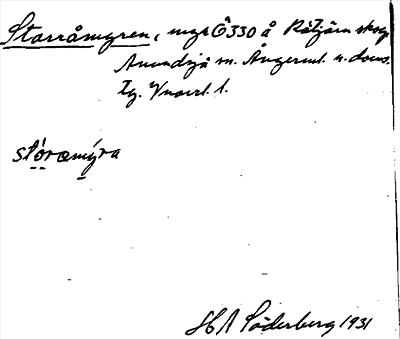 Storråmyren, myr Ö330 å Råtjärn skog
Anundsjö sn. Ångerml. n. doms.
Tg.
stóramýra
HA Söderberg 1931